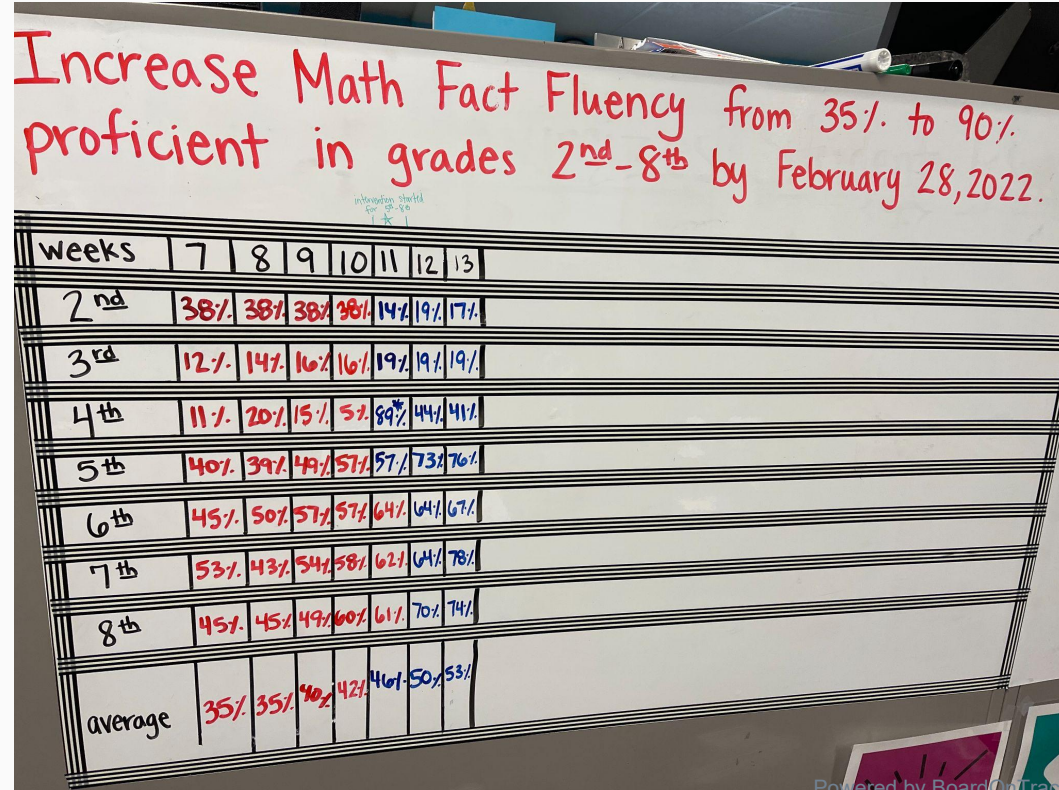 Increase Math Fact Fluency from 35% to 90%
proficient in grades 2nd-8th by February 28, 2022.
intervention started
for 5th-8th
weeks 7 8 9 10 11 12 13
2nd 38% 38% 38% 38% 14% 19% 17%
3rd 12% 14% 16% 16% 19% 19% 19%
4th 11% 20% 15% 5% 89%* 44% 41%
5th 40% 39% 49% 57% 57% 73% 76%
6th 45% 50% 57% 57% 64% 64% 67%
7th 53% 43% 54% 58% 62% 64% 78%
8th 45% 45% 49% 60% 61% 70% 74%
average 35% 35% 40% 42% 46% 50% 53%
Powered by BoardOnTrac